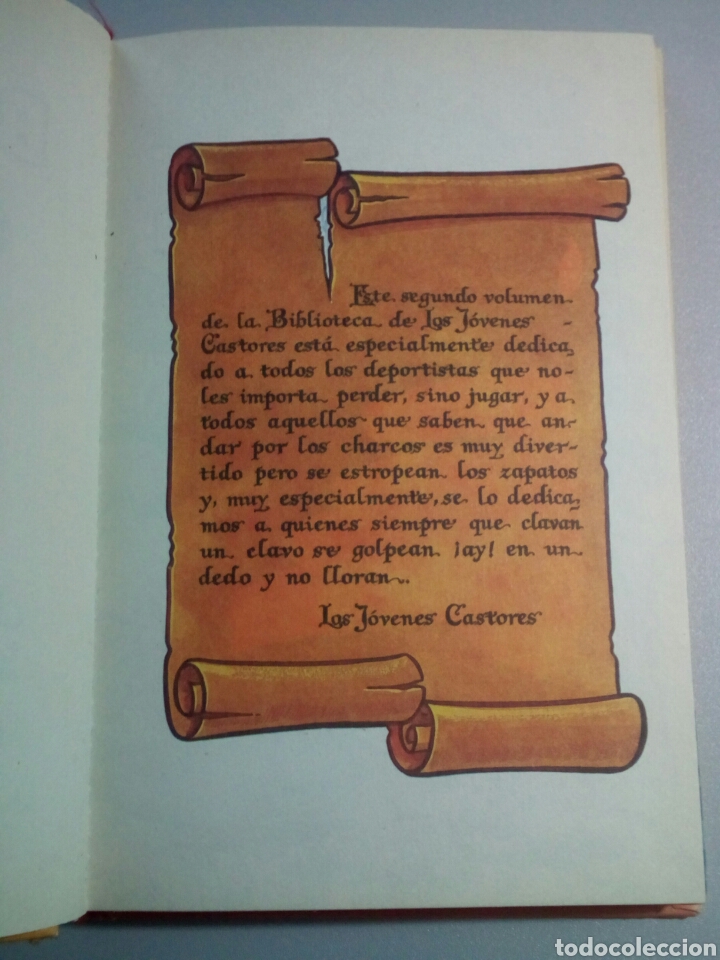 Este segundo volumen
de la Biblioteca de Los Jóvenes -
Castores está especialmente dedica
do a todos los deportistas que no-
les importa perder, sino jugar, y a
todos aquellos que saben que an-
dar por los charcos es muy diver-
tido pero se estropean los zapatos
y, muy especialmente, se lo dedica
mos a quienes siempre que clavan
un clavo se golpean ¡ay! en un
dedo y no lloran.
Los Jóvenes Castores
todocoleccion